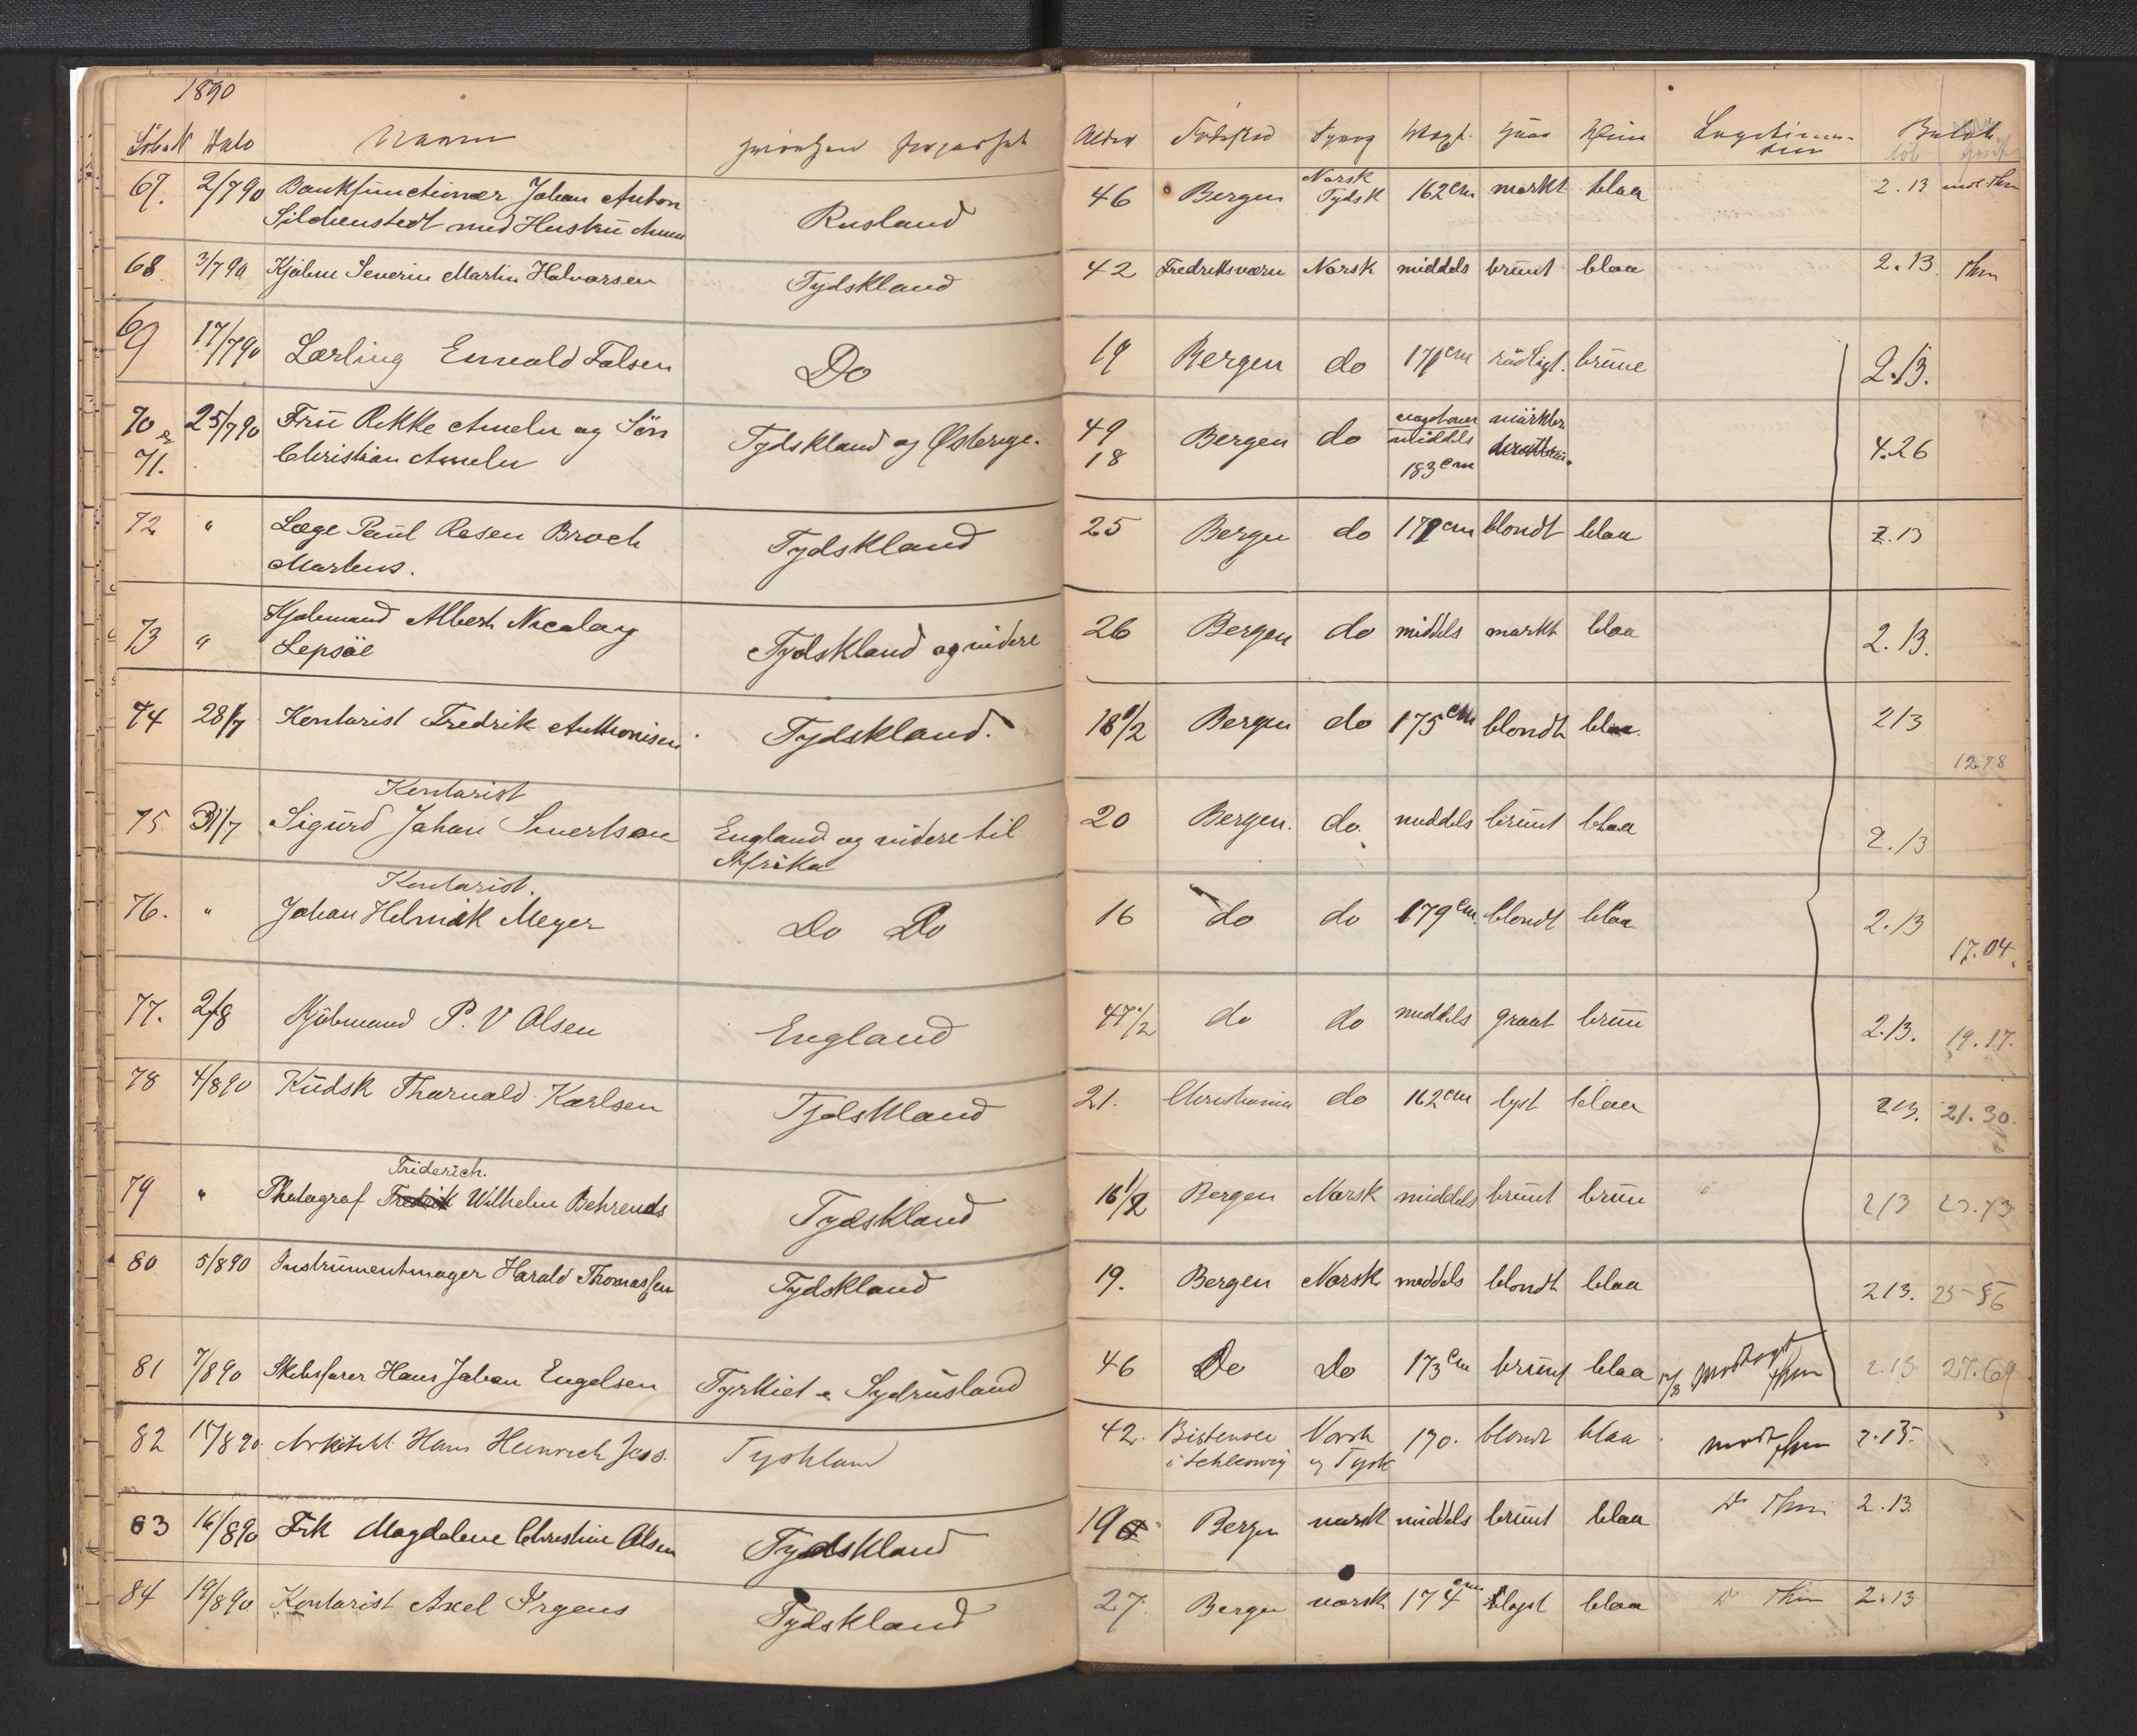 1890
Løbe N Dato Navn
Alder Fødested Sprog Vægt. Haar Øine
67. 2/7 90 Bankfunctionær Johan Anton Rusland 46 Bergen Norsk Tydsk 162 cm mørkt blaa 2.13
med Hustru
68 3/7 90 Kjøbm Severin Martin Halvorsen Tydskland 42 Fredriksværn Norsk middels brunt blaa 2.13. Thm
69 17/7 90 Lærling Ewald Falsen Do 19 Bergen do 171 cm rødligt. brune 2.13.
70 & 25/7 90 Frü Rikke Ameln og Søn Tydskland og Østerige. 49 Bergen do middels mørkler 4.26
71. Christian Ameln 18 183 cm
72 " Læge Paul Resen Broch Tydskland 25 Bergen do cm blondt blaa 2.13
Martens.
73 " Kjøbmand Albert Nicolay Tydskland og videre 26 Bergen do middels mørkt blaa 2.13.
Lepsöe
74 28/7 Kontorist Fredrik Anthonisen Tydskland. 18 1/2 Bergen do 175 cm blondt blaa 213
12.78
Kontorist
75 31/7 Sigurd Johan England og videre til 20 Bergen. do. middels brunt blaa 2.13
Afrika
Kontorist.
76. " Johan Helmik Meyer Do Do 16 do do 179 cm blondt blaa 2.13
17.04.
77. 2/8 Kjøbmand P. V Olsen England 47 1/2 do do middels graat brun 2.13. 19.17.
78 4/8 90 Kudsk Thorvald Karlsen Tydskland 21. Christiania do 162 cm lyst blaa 213. 21.30.
Friderich.
79 " Photograf Fredrik Wilhelm Behrends Tydskland 16 1/2 Bergen Norsk middels brunt brun 213
80 5/8 90 Instrumentmager Harald Thomassen Tydskland 19. Bergen Norsk middels blondt blaa 213.
81 7/8 90 Skibsfører Hans Johan Engelsen Tyrkiet & Sydrusland 46 Do Do 173 cm brunt blaa 12/8 modtagt Thm 2.13 27.69
82 15/8 90. Arkitekt Hans Heinrich Jess. Tyskland 42. Bistensee Norsk 170. blondt blaa modt Thm 2.13.
i Schleswig og Tysk
83 16/8 90 Frk Magdalene Christine Olsen Tydskland 19 Bergen norsk middels brunt blaa Do Thm 2.13.
84 19/8 90 Kontorist Axel Irgens Tydskland 27. Bergen norsk 174 cm blaa Do Thm 2.13